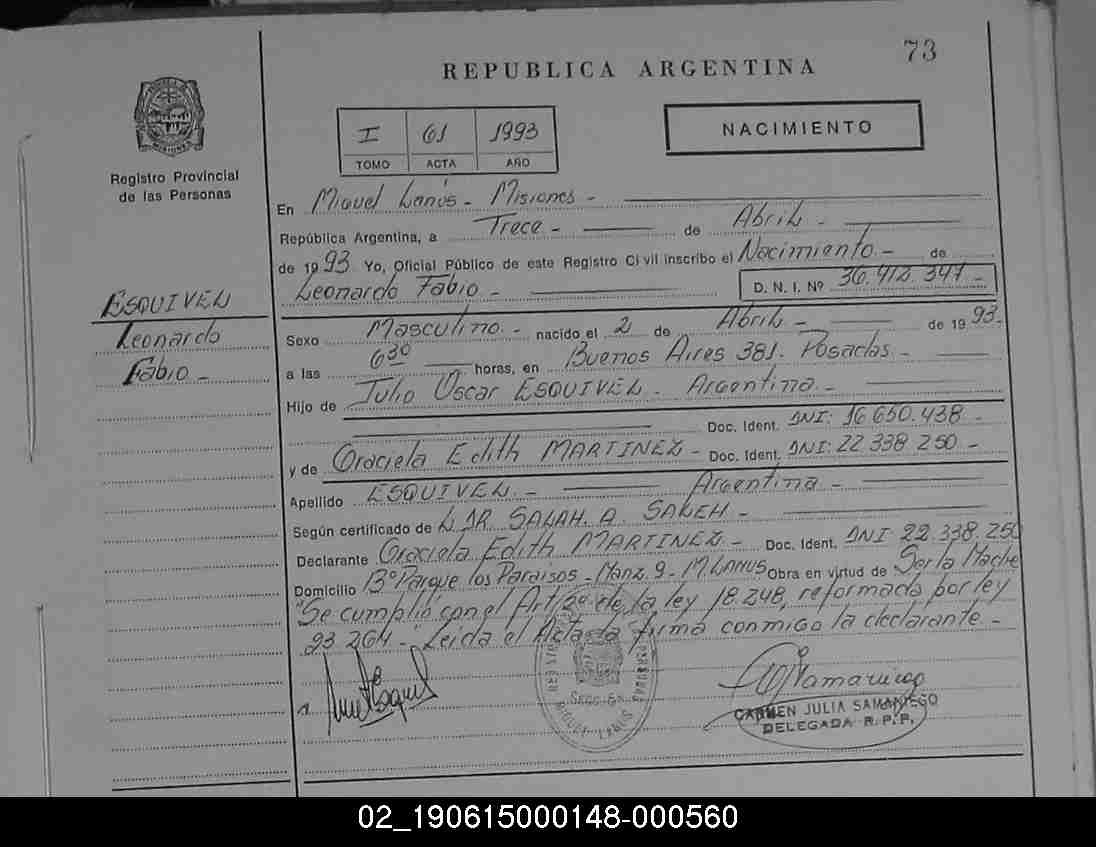 73
REPUBLICA ARGENTINA
I 61 1993
TOMO ACTA AÑO
NACIMIENTO
Registro Provincial
de las Personas
En Miguel Lanús - Misiones -
República Argentina, a Trece - de Abril -
de 1993 Yo, Oficial Público de este Registro Civil inscribo el Nacimiento - de
Leonardo Fabio - D. N. I. Nº 36.412.347 -
ESQUIVEL
Leonardo
Fabio -
Sexo Masculino - nacido el 2 de Abril - de 1993.
a las 6 30 horas, en Buenos Aires 381. Posadas -
Hijo de Julio Oscar ESQUIVEL - Argentina -
Doc. Ident. DNI: 16.650.438 -
y de Graciela Edith MARTINEZ - Doc. Ident. DNI: 22.338.250 -
Apellido ESQUIVEL - Argentina -
Según certificado de DR. SALAH. A. SALEH -
Declarante Graciela Edith MARTINEZ - Doc. Ident. DNI 22.338.250
Domicilio Bº Parque los Paraisos - Manz. 9 - M. LANUS Obra en virtud de Ser la Madre
"Se cumplió con el Art. 2º de la ley 18.248, reformada por ley
23.264 - "Leida el Acta la firma conmigo la declarante -
SECC. 6a
MIGUEL LANUS
CARMEN JULIA SAMANIEGO
DELEGADA R. P. P.
02_190615000148-000560